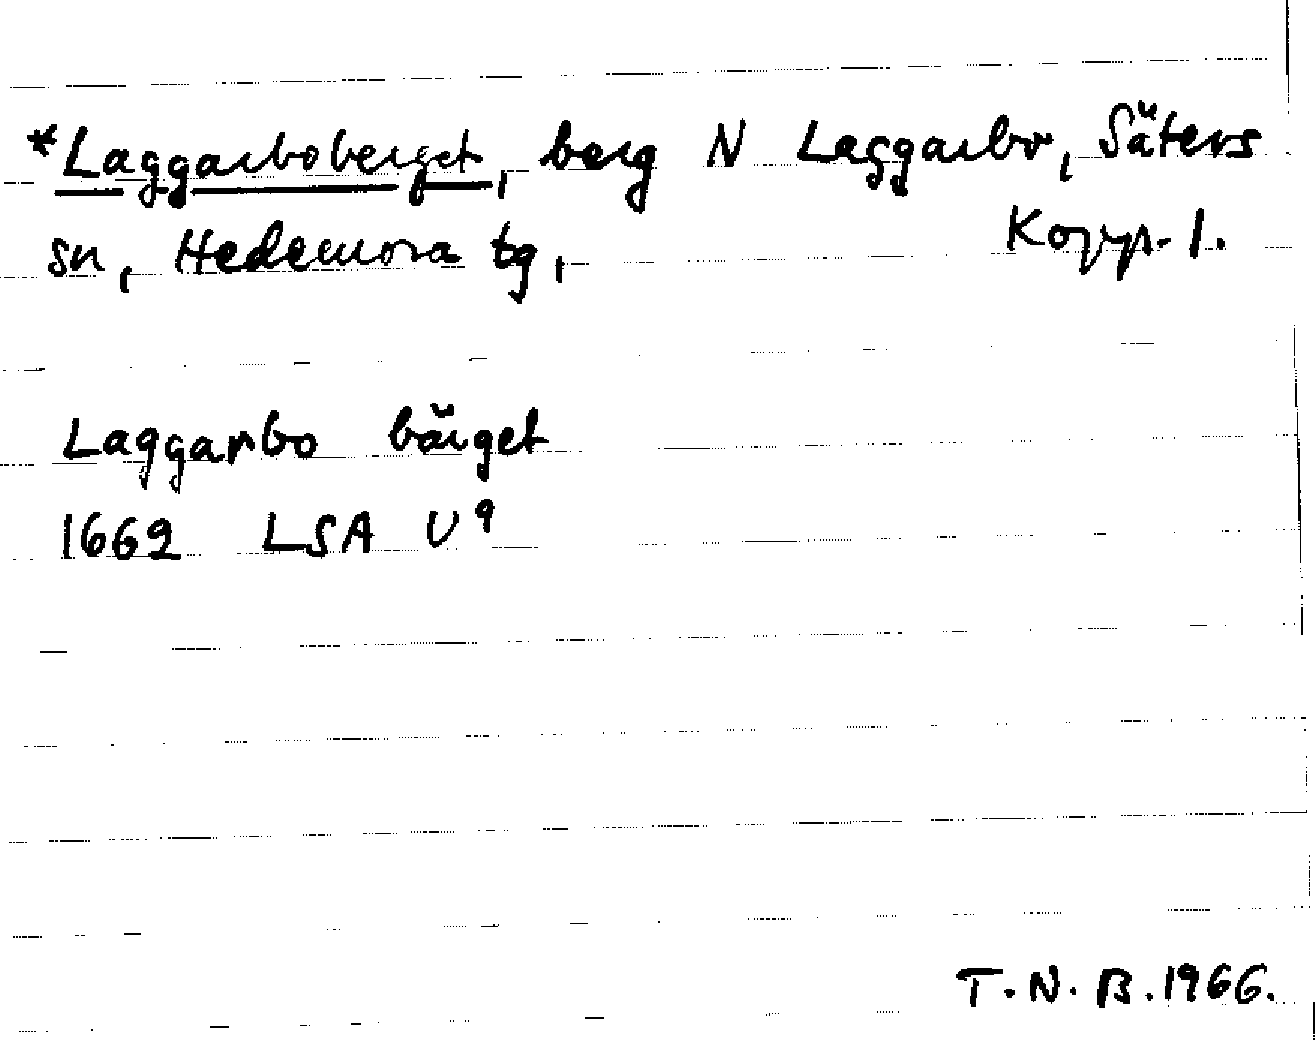 *Laggarboberget, berg N Laggarbo, Säters
sn, Hedemora tg, Kopp. l.
Laggarbo bärget
1662 LSA U⁹
T. N. B. 1966.